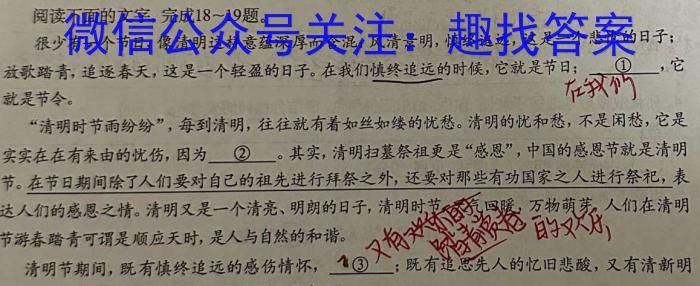 阅读下面的文字,完成18~19题。
微信公众号关注:趣找答案
很少有一个节日,像清明这样意蕴深厚而
放歌踏青,追逐春天,这是一个轻盈的日子。在我们慎终追远的时候,它就是节日;①,它
在我们
就是节令。
“清明时节雨纷纷”,每到清明,往往就有着如丝如缕的忧愁。清明的忧和愁,不是闲愁,它是
实实在在有来由的忧伤,因为②。其实,清明扫墓祭祖更是“感恩”,中国的感恩节就是清明
节。在节日期间除了人们要对自己的祖先进行拜祭之外,还要对那些有功国家之人进行祭祀,表
达人们的感恩之情。清明又是一个清亮、明朗的日子,清明时节,天气回暖,万物萌芽,人们在清明
节游春踏青可谓是顺应天时,是人与自然的和谐。
又有 踏青赏春 的欢乐
清明节期间,既有慎终追远的感伤情怀,③;既有追思先人的忆旧悲酸,又有清新明